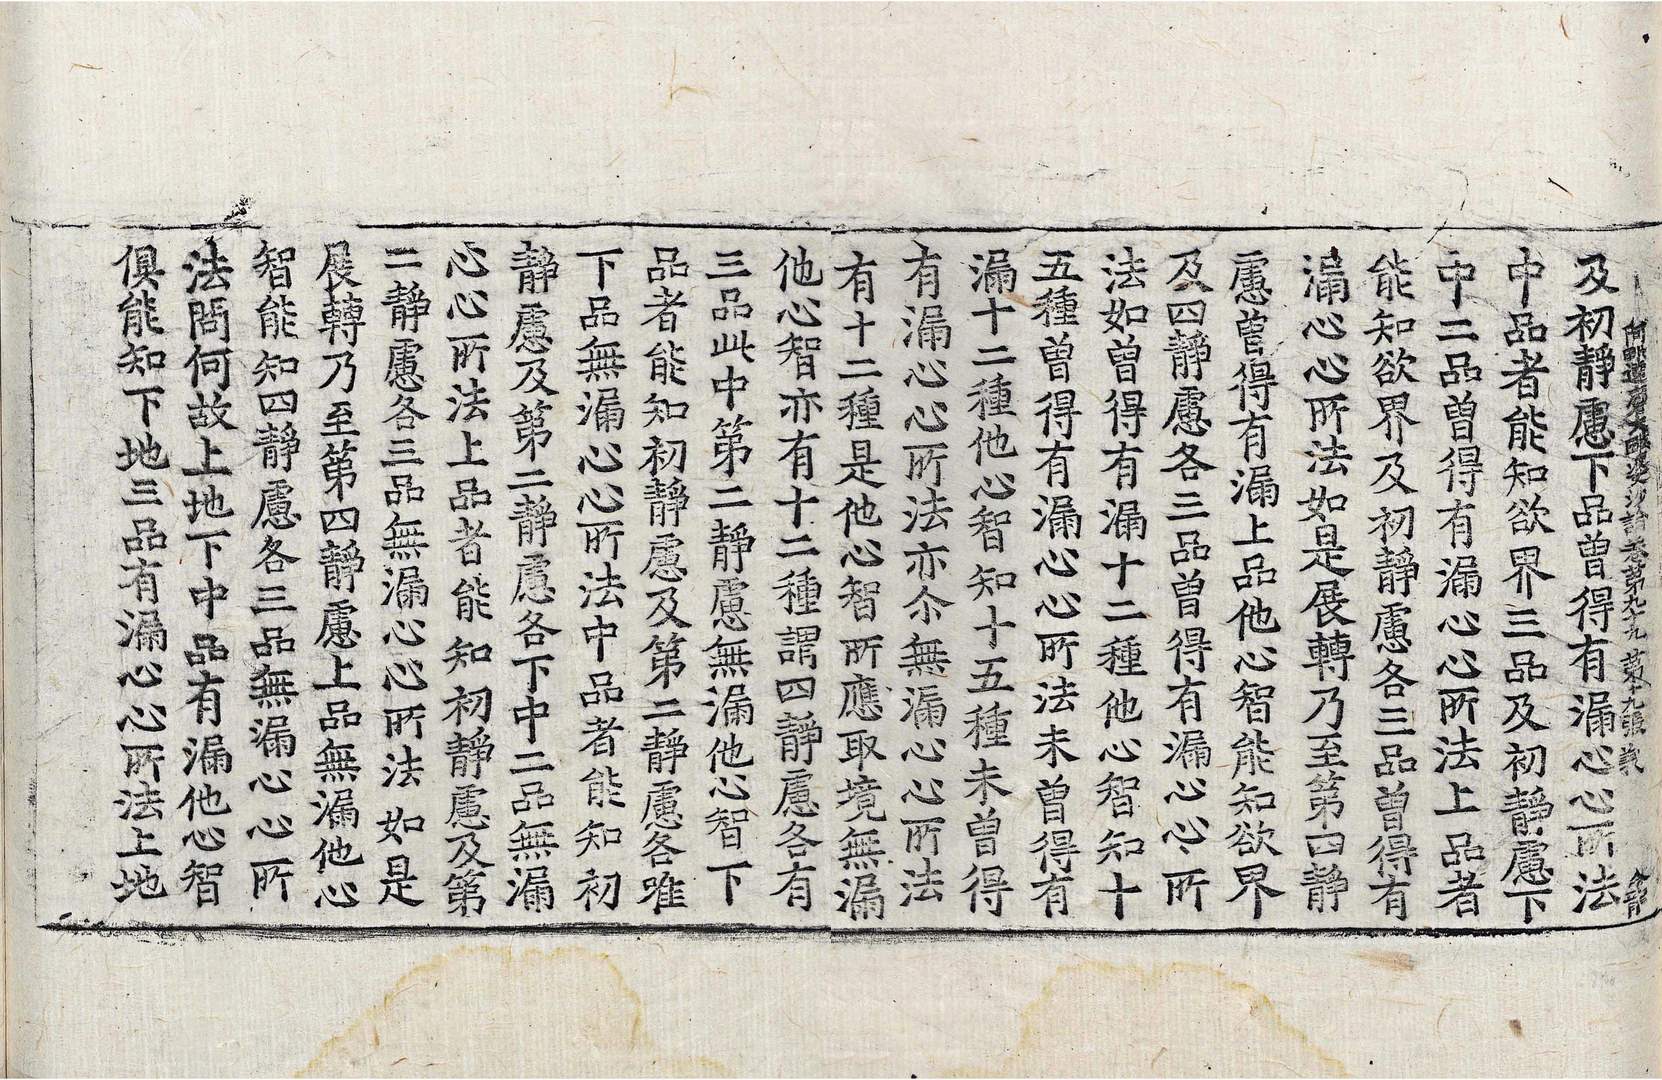 阿毗達磨大毗婆沙論卷第九十九 第十九張 義
及初靜慮下品曾得有漏心心所法
中品者能知欲界三品及初靜慮下
中二品曾得有漏心心所法上品者
能知欲界及初靜慮各三品曾得有
漏心心所法如是展轉乃至第四靜
慮曾得有漏上品他心智能知欲界
及四靜慮各三品曾得有漏心心所
法如曾得有漏十二種他心智知十
五種曾得有漏心心所法未曾得有
漏十二種他心智知十五種未曾得
有漏心心所法亦尒無漏心心所法
有十二種是他心智所應取境無漏
他心智亦有十二種謂四靜慮各有
三品此中第二靜慮無漏他心智下
品者能知初靜慮及第二靜慮各唯
下品無漏心心所法中品者能知初
靜慮及第二靜慮各下中二品無漏
心心所法上品者能知初靜慮及第
二靜慮各三品無漏心心所法如是
展轉乃至第四靜慮上品無漏他心
智能知四靜慮各三品無漏心心所
法問何故上地下中品有漏他心智
俱能知下地三品有漏心心所法上地